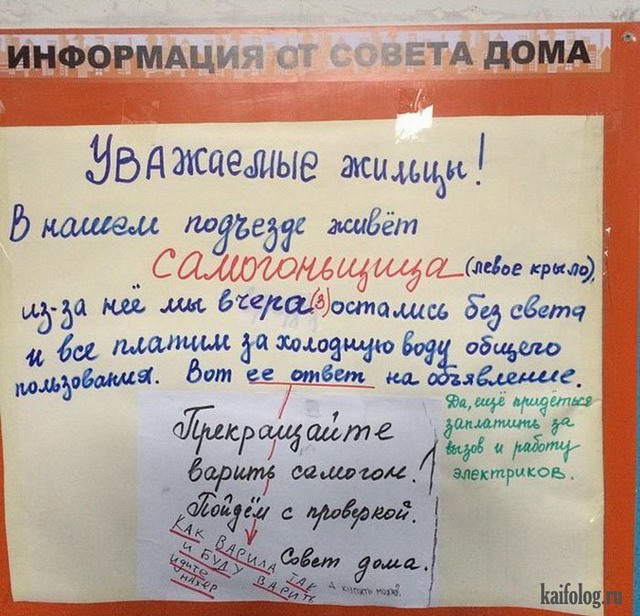 ИНФОРМАЦИЯ ОТ СОВЕТА ДОМА
Уважаемые жильцы!
В нашем подъезде живёт
самогоньщица (левое крыло),
из-за неё мы вчера(3) остались без света
и все платим за холодную воду общего
пользования. Вот ее ответ на объявление.
Да, ещё придёться
заплатить за
вызов и работу
электриков.
Прекращайте
варить самогон.
Пойдём с проверкой.
Совет дома.
КАК ВАРИЛА ТАК
И БУДУ ВАРИТЬ
идите
нахер
А купить можно?
kaifolog.ru